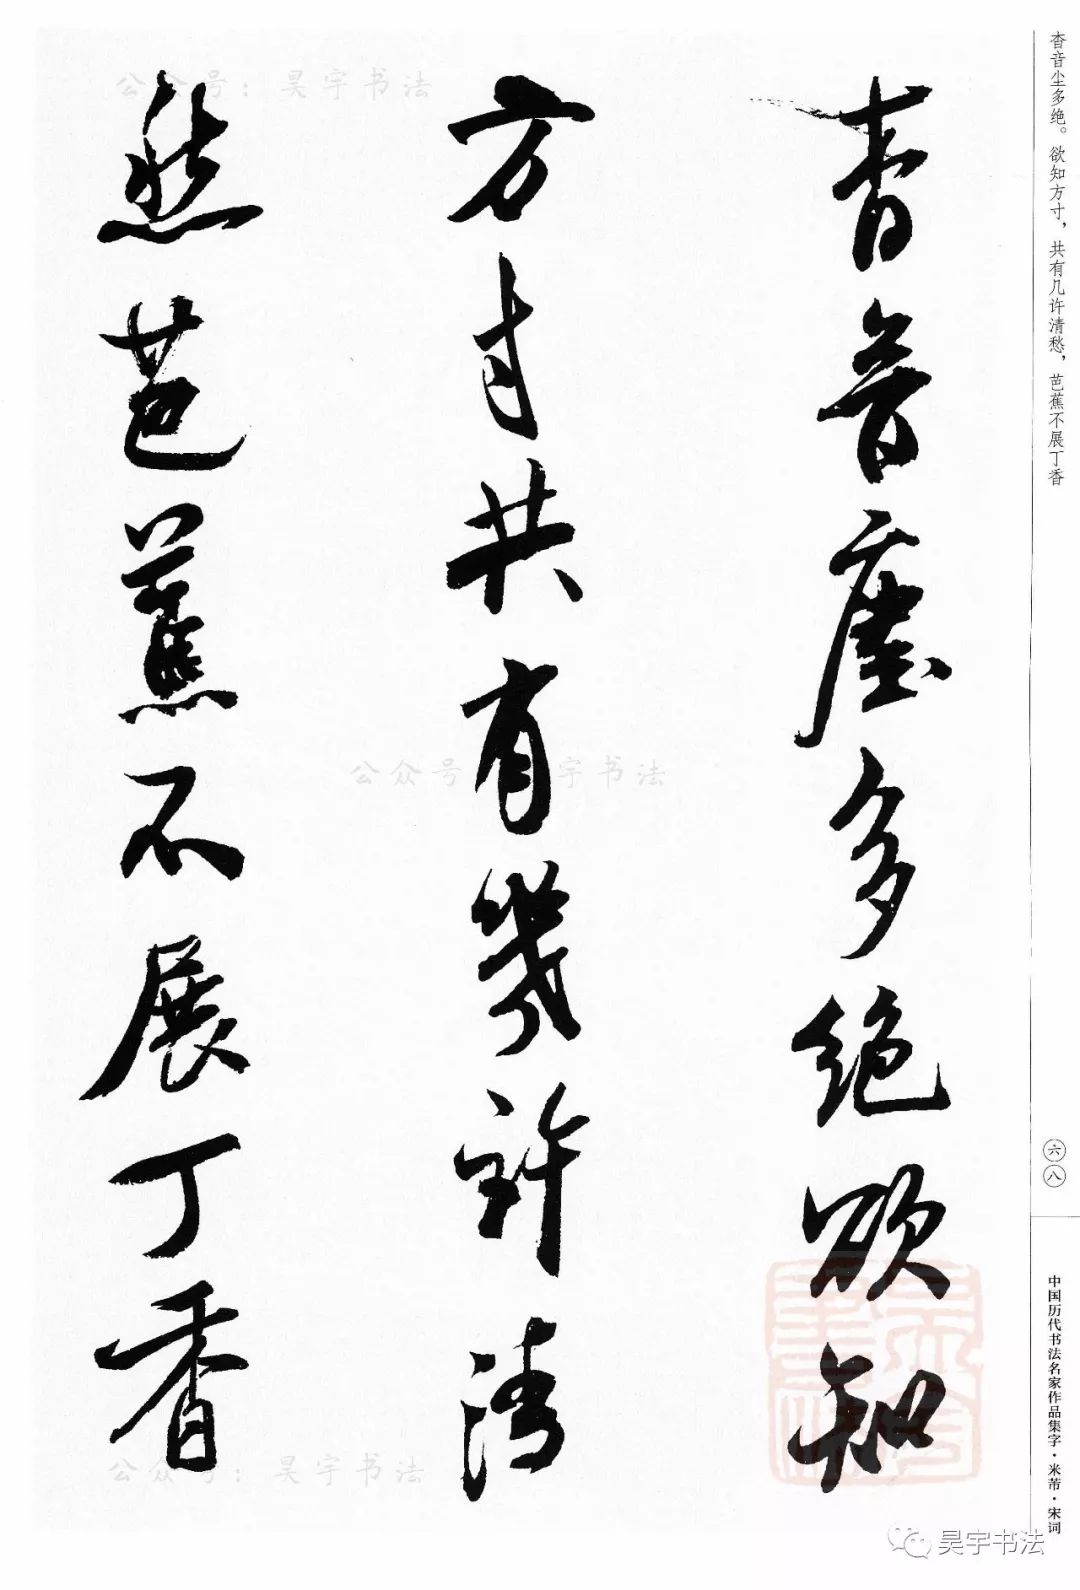 杳音尘多绝。欲知方寸，共有几许清愁，芭蕉不展丁香
六八
中国历代书法名家作品集字·米芾·宋词
杳音塵多絕欲知
方寸共有幾許清
愁芭蕉不展丁香
公众号：昊宇书法
公众号 宇书法
公众号：昊宇书法
昊宇书法